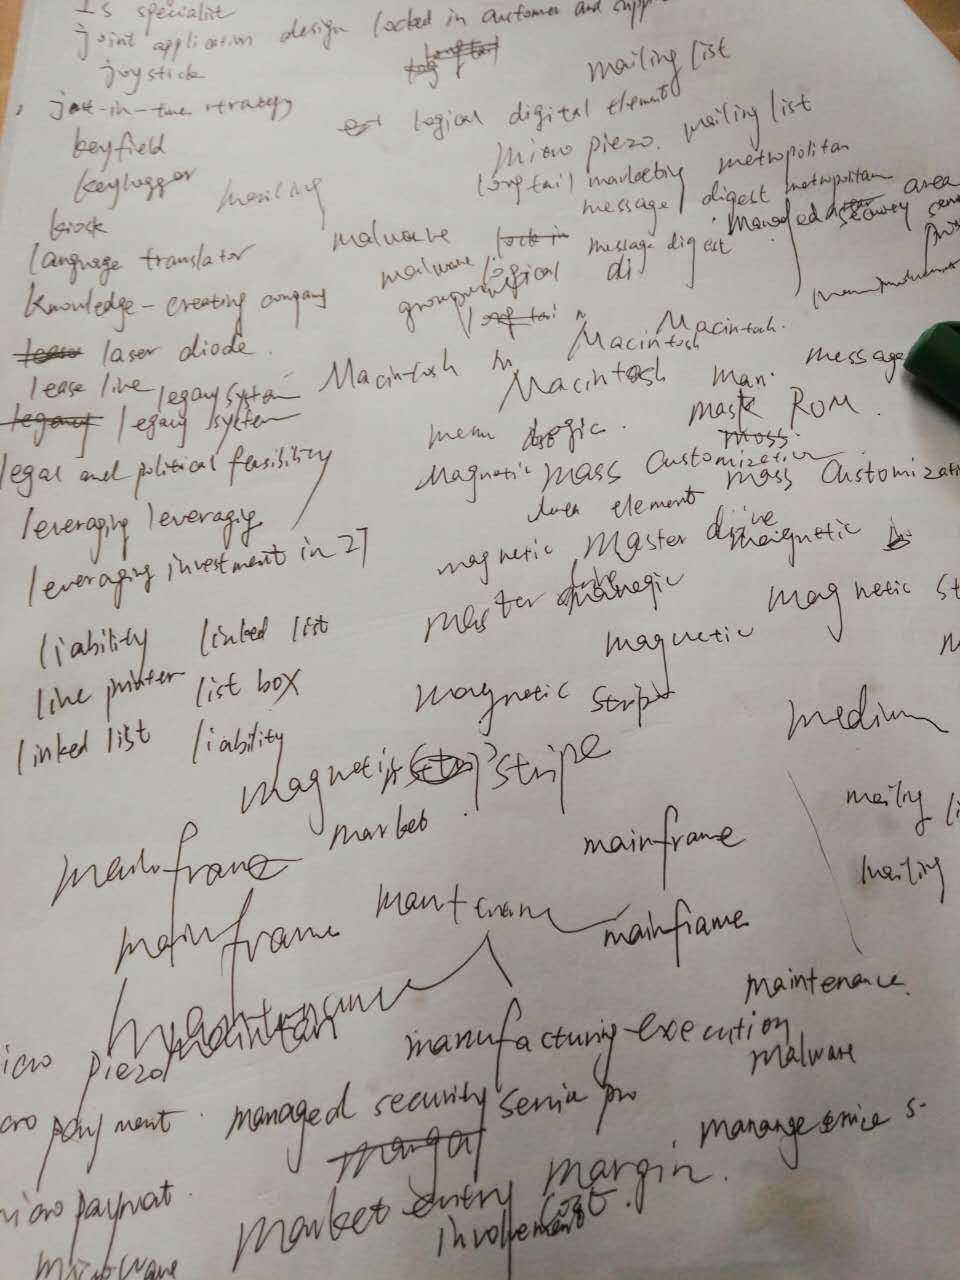 IS specialist
joint application design locked in customer and supp
joystick
mailing list
just-in-time strategy
logical digital element
keyfield
micro piezo. mailing list
keylogger
mailing
long tail marketing metropolitan
kiosk
message digest metropolitan area
malware lock in message digest managed security
language translator
malware logical di
knowledge-creating company
long tail
laser diode.
Macintosh Macintosh.
lease line legacy system
Macintosh in Macintosh man. message
legacy legacy system
mem logic. mask ROM.
moss.
legal and political feasibility
magnetic mass customization
mass customizati
leveraging leveraging
element
magnetic master drive magnetic
leveraging investment in 27
master
magnetic magnetic st
liability linked list
line printer list box
magnetic stripe
linked list liability
medium
magnetic stripe
market
mailing li
mainframe mainframe
mailing
mainframe
mainframe
maintenance.
icro piezo maintan
manufacturing execution
malware
cro payment. managed security servic pro
manange service s.
icro paymat.
market entry margin.
involvement cost.
microwave